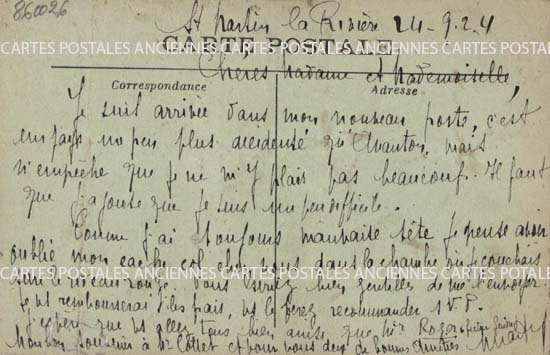 860026
St Martin la Rivière 24-9.24
CARTE POSTALE
CARTES POSTALES ANCIENNES CARTES POSTALES ANCIENNES CARTES POSTALES ANCIENNES
Chères Madame et Mademoiselle,
Correspondance Adresse
Je suis arrivée dans mon nouveau poste, c'est
un pays un peu plus accidenté qu'Avanton, mais
n'empêche que je ne m'y plais pas beaucoup. Il faut
que j'ajoute que je suis un peu difficile.
Comme j'ai toujours mauvaise tête je pense avoir
oublié mon cache col chez vous dans la chambre où je couchais
CARTES POSTALES ANCIENNES CARTES POSTALES ANCIENNES CARTES POSTALES ANCIENNES
le rideau rouge. Vous seriez bien gentilles de me l'envoyer.
Je vs rembourserai les frais, vs le ferez recommander S.V.P.
J'espère que vs allez tous bien, ainsi que Mr Roger
Mon bon souvenir à Mr Collet et pour vous deux de bonnes amitiés